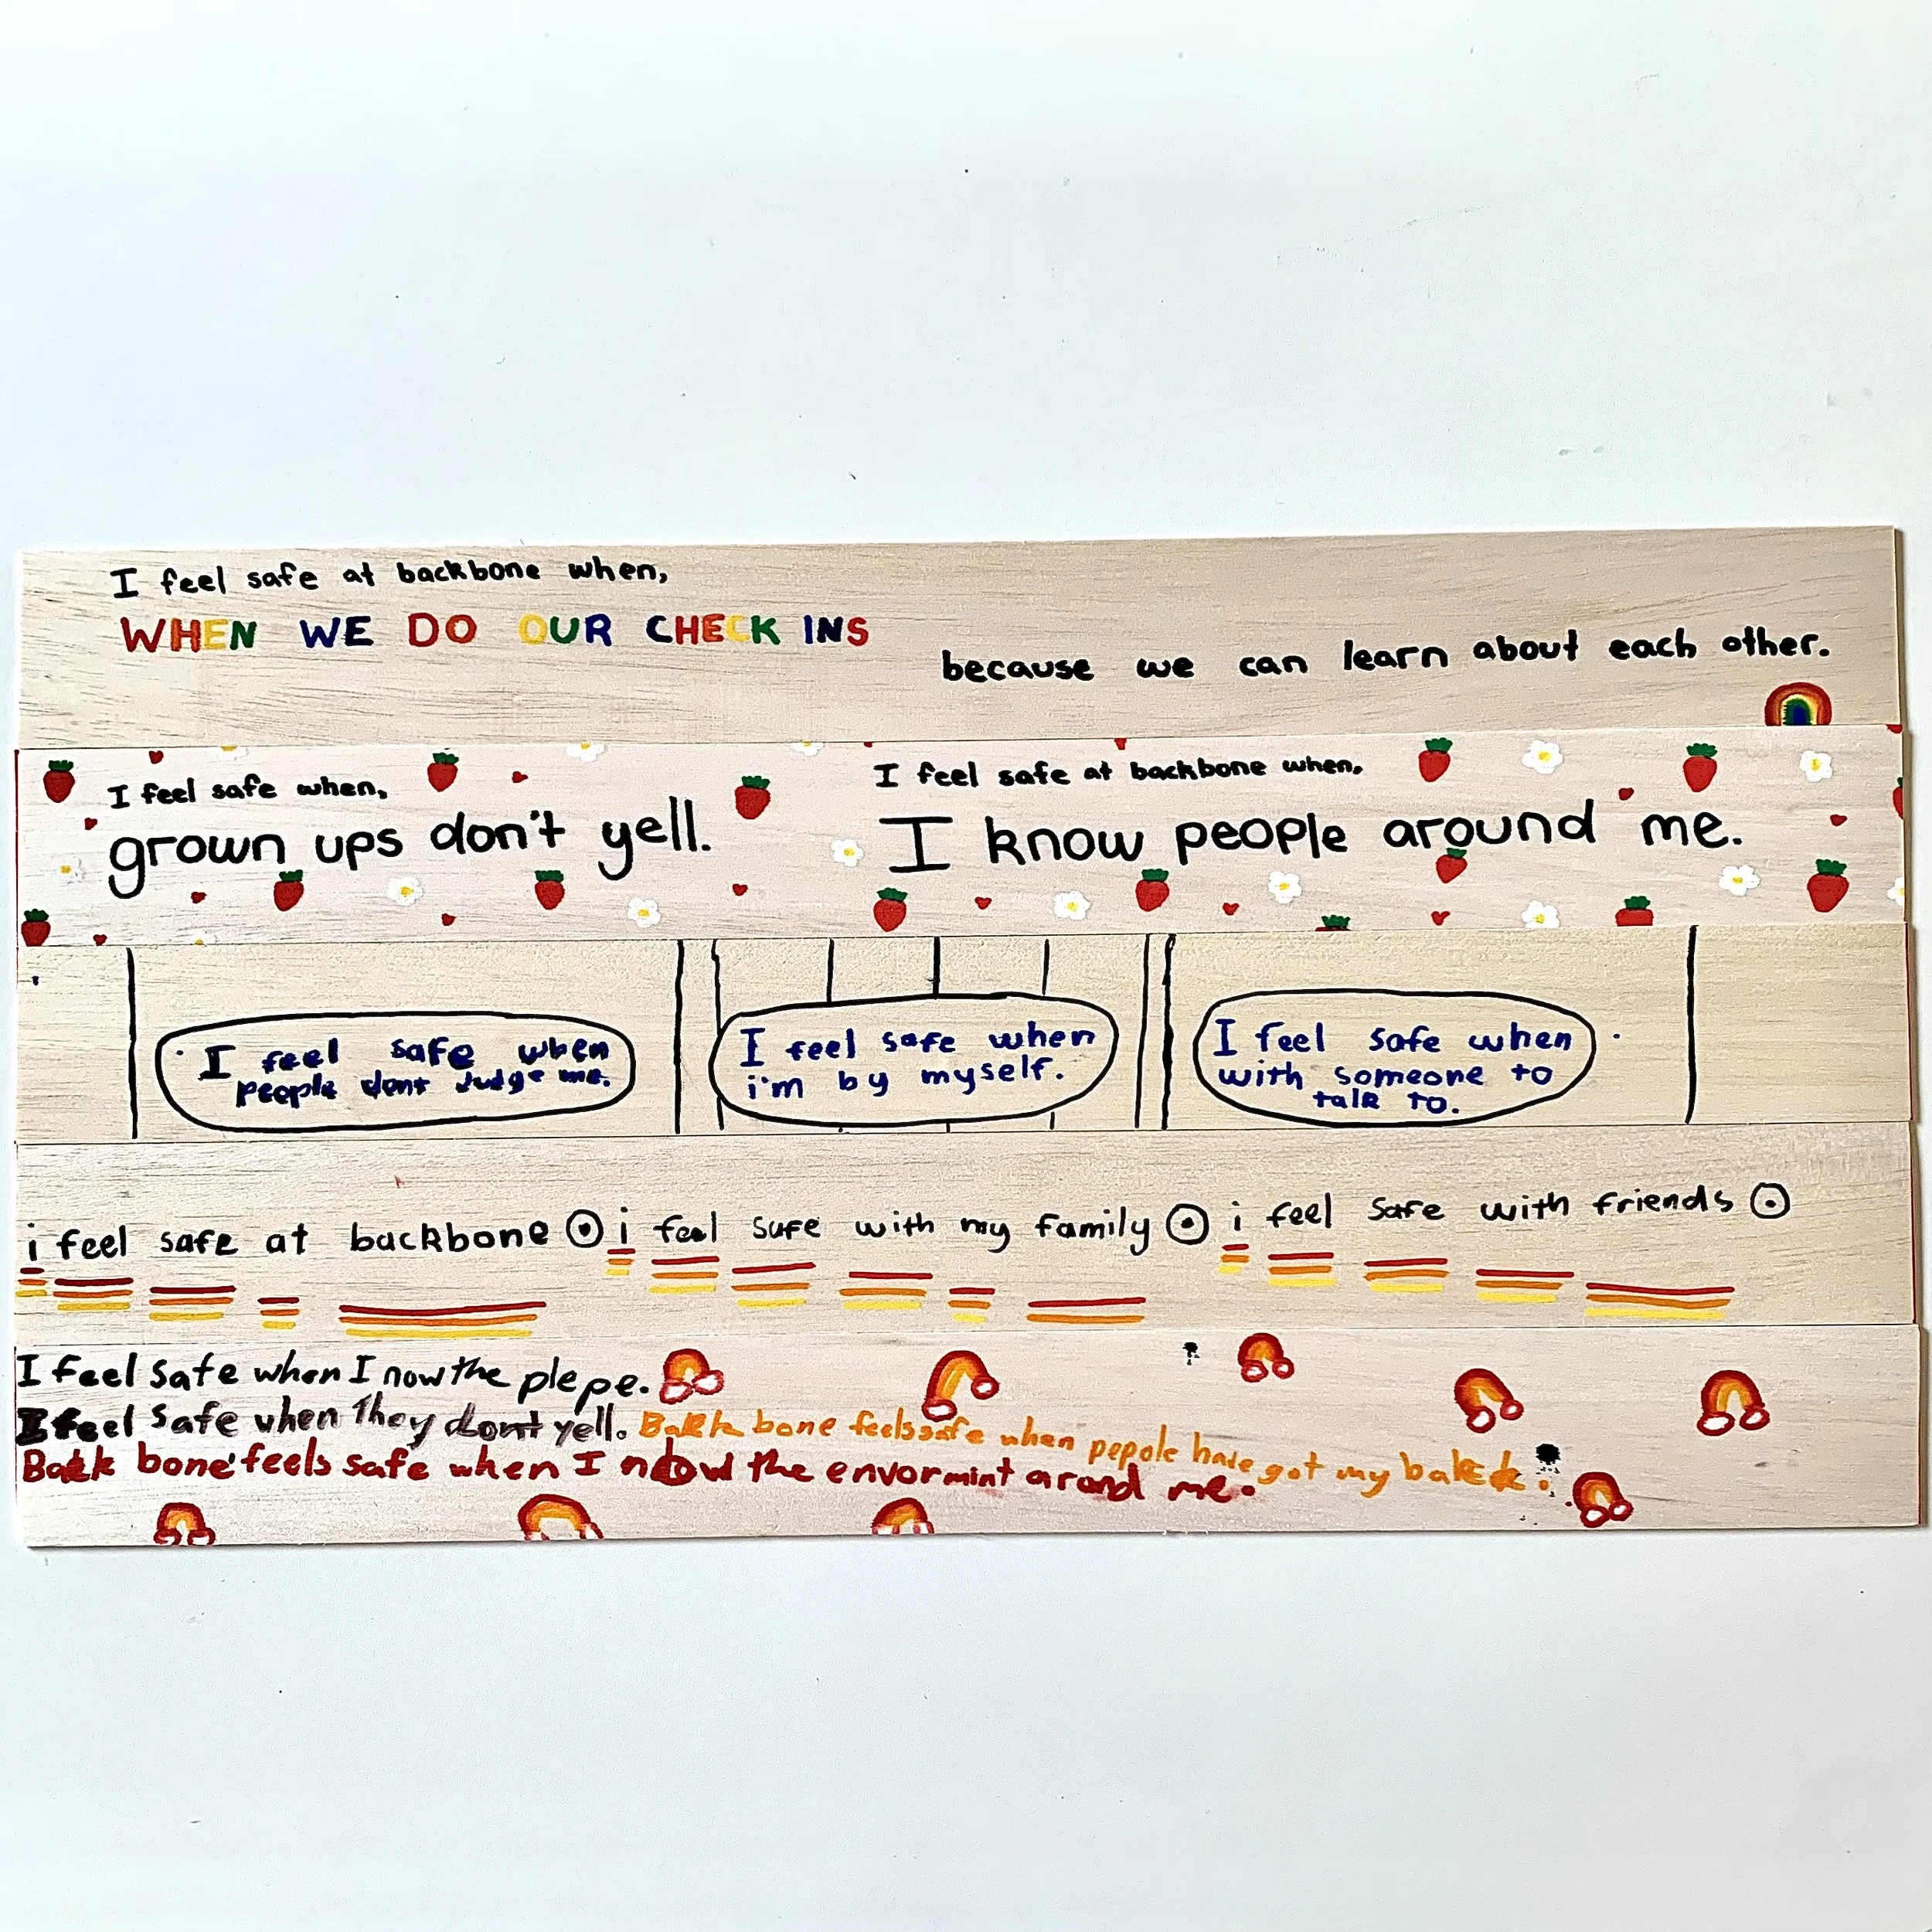 I feel safe at backbone when,
WHEN WE DO OUR CHECK INS
because we can learn about each other.
I feel safe when,
grown ups don't yell.
I feel safe at backbone when,
I know people around me.
I feel safe when
people dont Judge me.
I feel safe when
i'm by myself.
I feel safe when
with someone to
talk to.
i feel safe at backbone
i feel safe with my family
i feel safe with friends
I feel safe when I now the plepe.
I feel safe when they dont yell. Back bone feels safe when pepole have got my back.
Back bone feels safe when I now the envormint arond me.